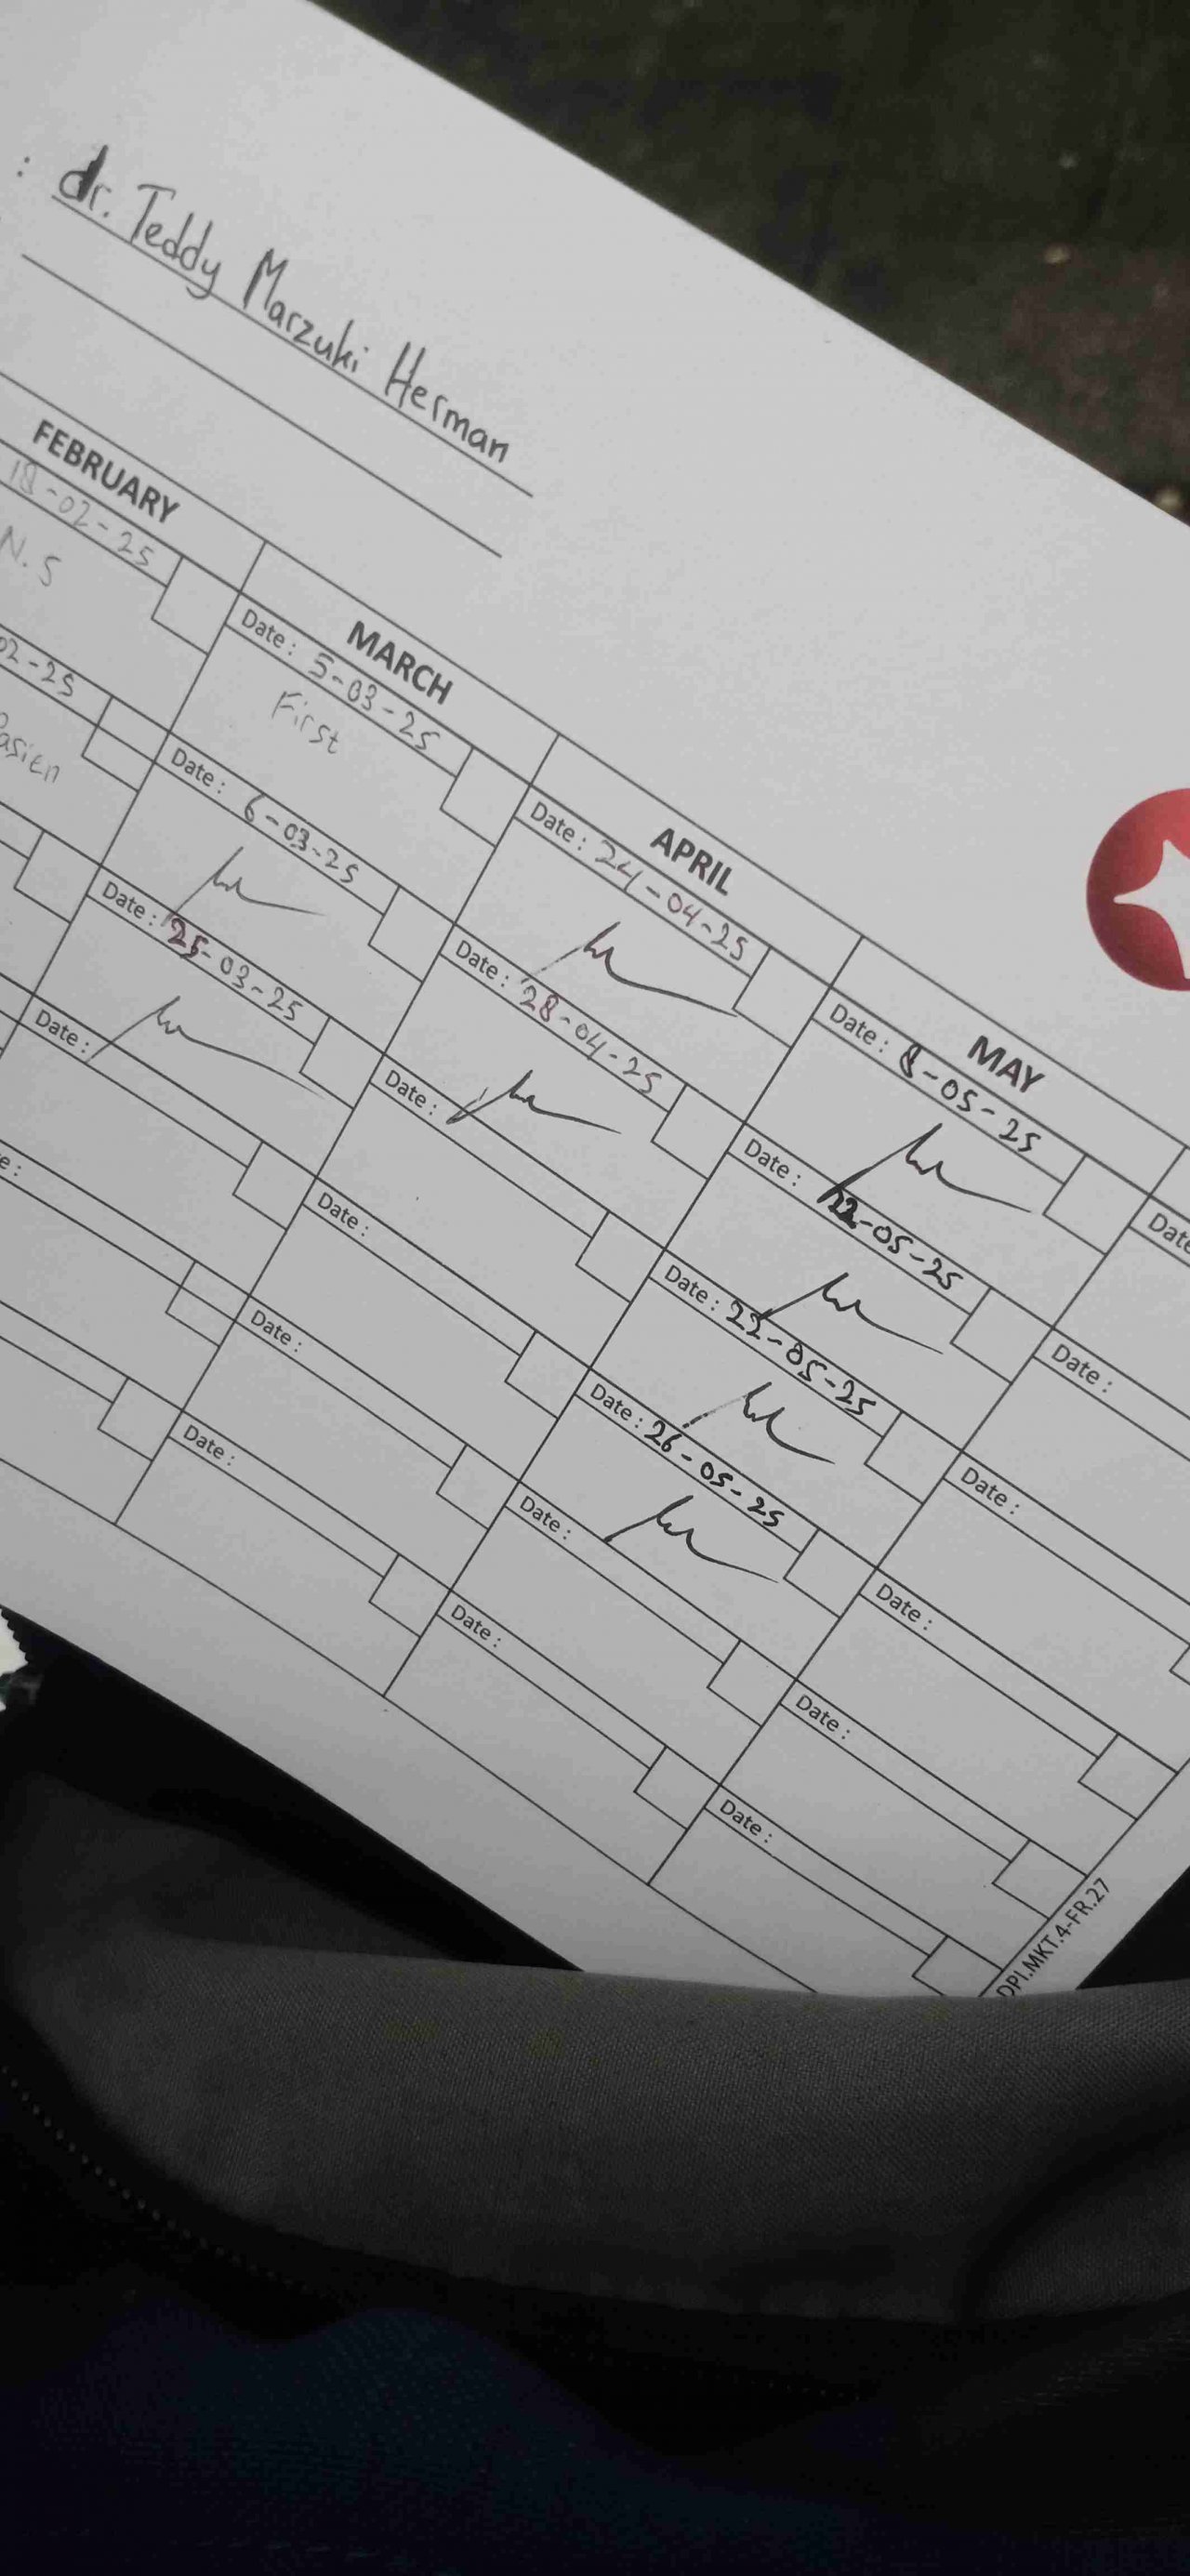 : dr. Teddy Marzuki Herman
FEBRUARY
18-02-25
N.S
02-25
asien
MARCH
Date : 5-03-25
First
Date : 6-03-25
Date : 25-03-25
Date :
APRIL
Date : 24-04-25
Date : 28-04-25
Date :
Date :
Date :
Date :
MAY
Date : 8-05-25
Date : 22-05-25
Date : 22-05-25
Date : 26-05-25
Date :
Date :
Date
Date :
Date :
Date :
Date :
Date :
DPI.MKT.4-FR.27